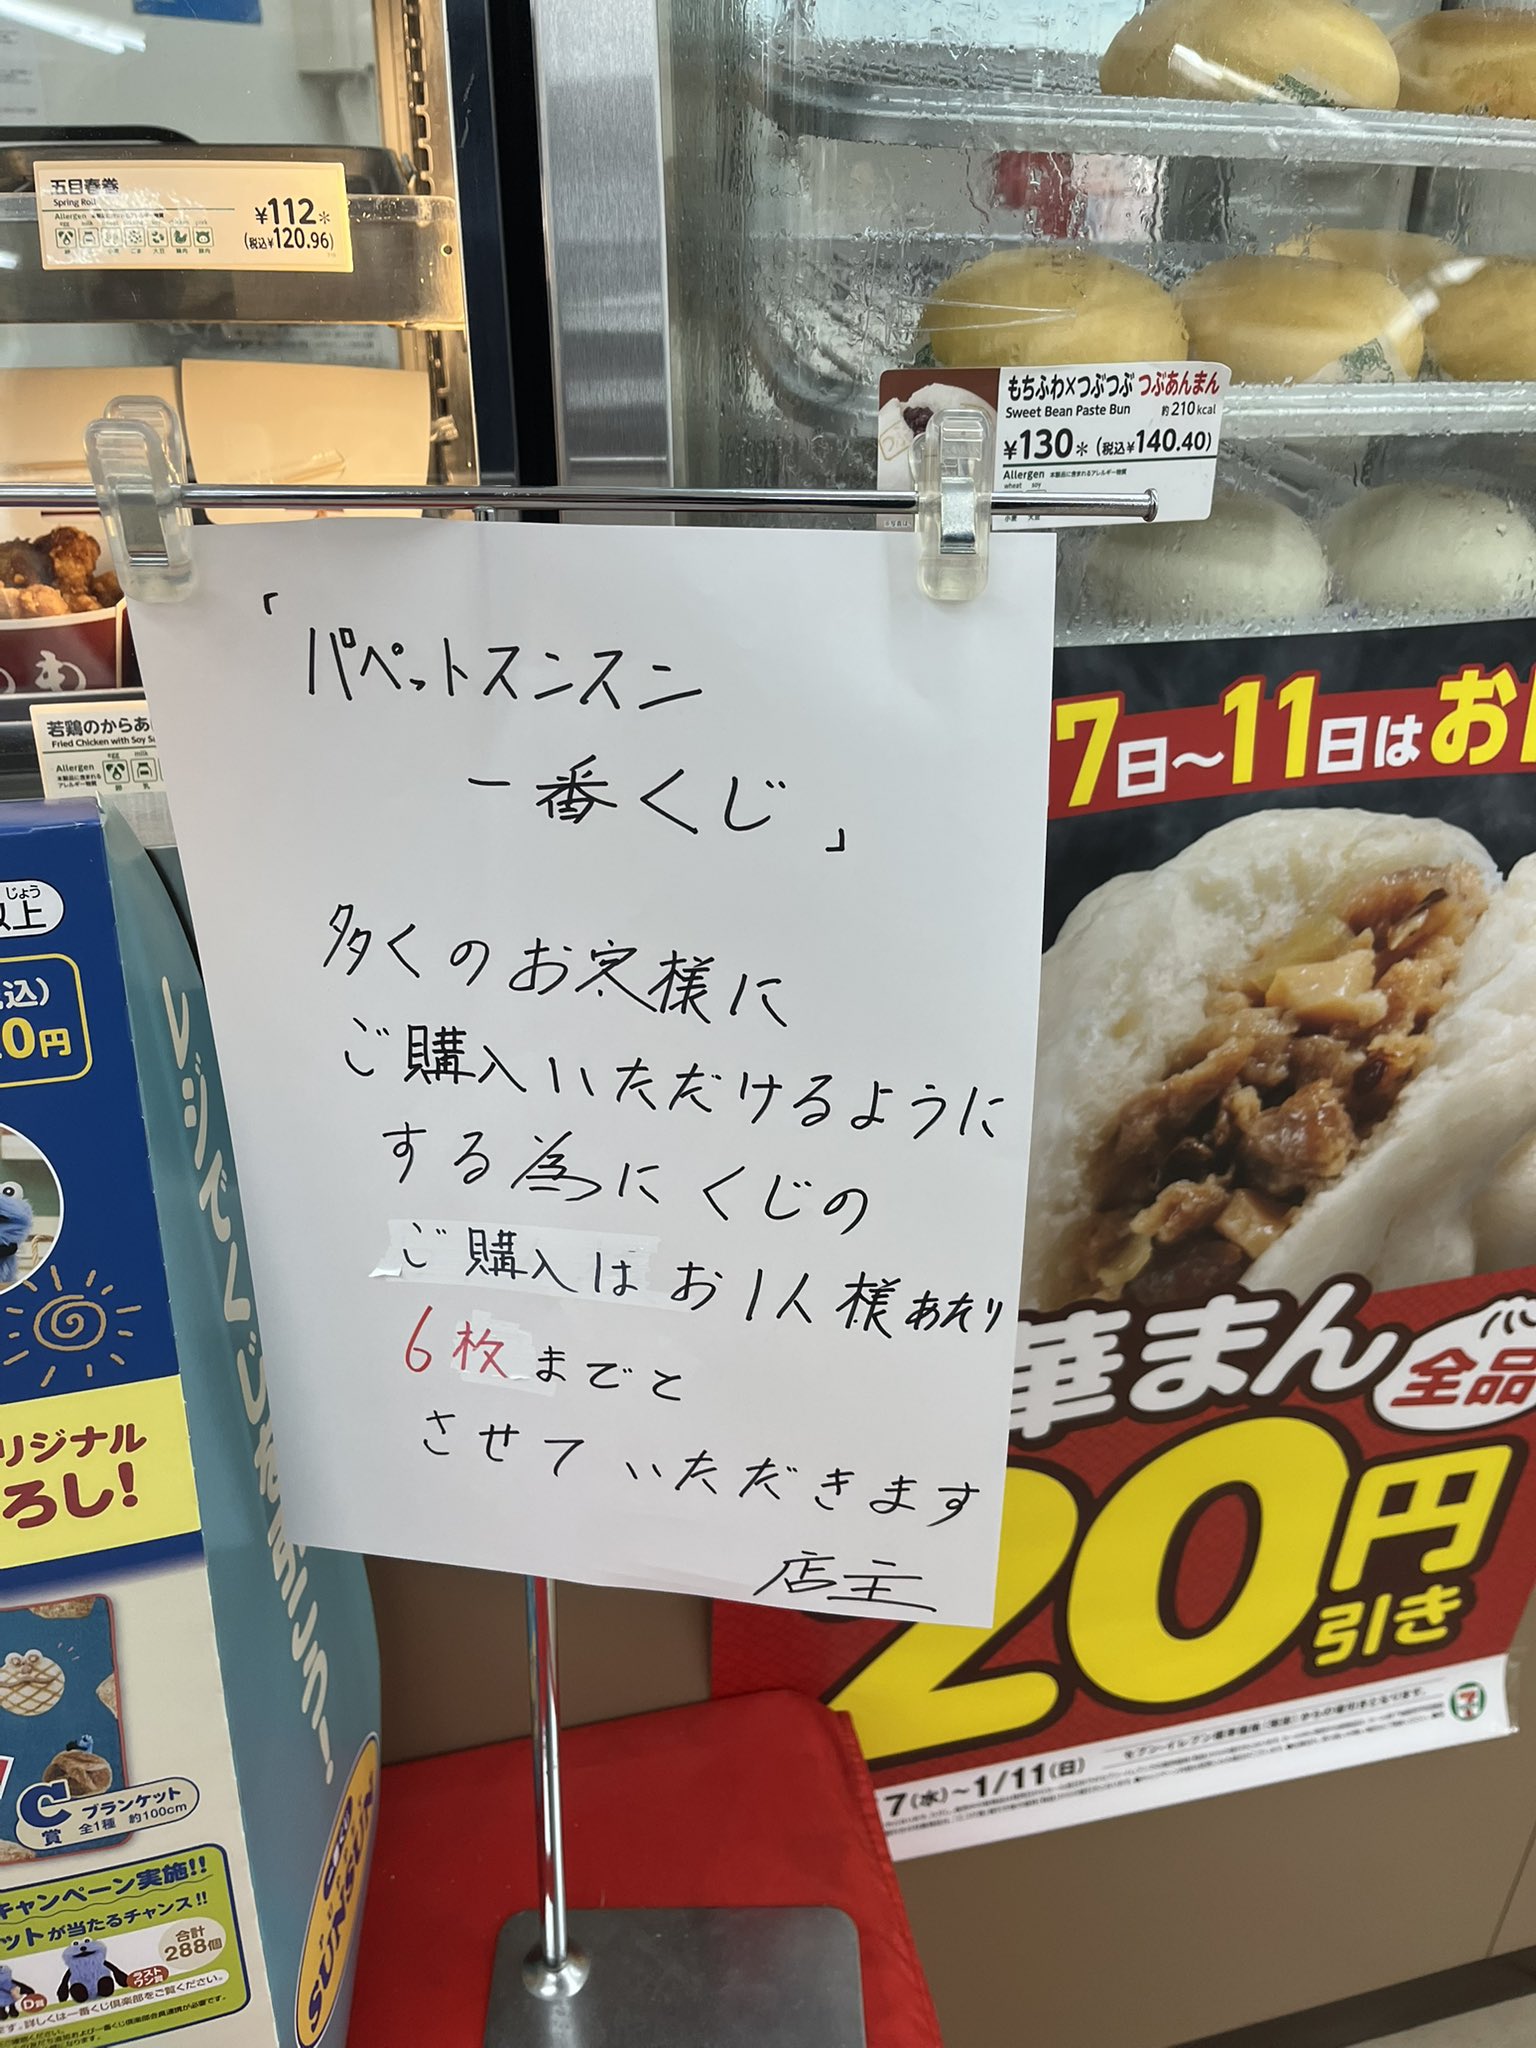 五目春巻
Spring Roll
Allergen
¥112*
(税込¥120.96)
もちふわ×つぶつぶ つぶあんまん
Sweet Bean Paste Bun 約210kcal
¥130* (税込¥140.40)
Allergen 本製品に含まれるアレルギー物質
wheat soy
小麦 大豆
「パペットスンスン
一番くじ」
多くのお客様に
ご購入いただけるように
する為にくじの
ご購入は お1人様あたり
6枚までと
させていただきます
店主
若鶏のからあ
Fried Chicken with Soy S
Allergen
egg milk
卵 乳
7日～11日はお
華まん
全品
20円
引き
7(水)～1/11(日)
じょう
以上
込)
0円
レジでくじ
リジナル
ろし!
C賞
ブランケット
全1種 約100cm
キャンペーン実施!!
ットが当たるチャンス!!
合計
288個
D賞
ラスト
ワン賞
しくは一番くじ倶楽部をご覧ください。
SUNSUN